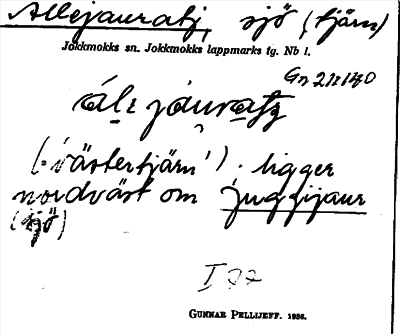 Allejauratj, sjö (tjärn)
Jokkmokks sn. Jokkmokks lappmarks tg. Nb l.
Gn 211140
álı̣e jáurat̜z
('västertjärn'). ligger
nordväst om Juggijaur
(sjö)
I 77
GUNNAR PELLIJEFF. 1936.